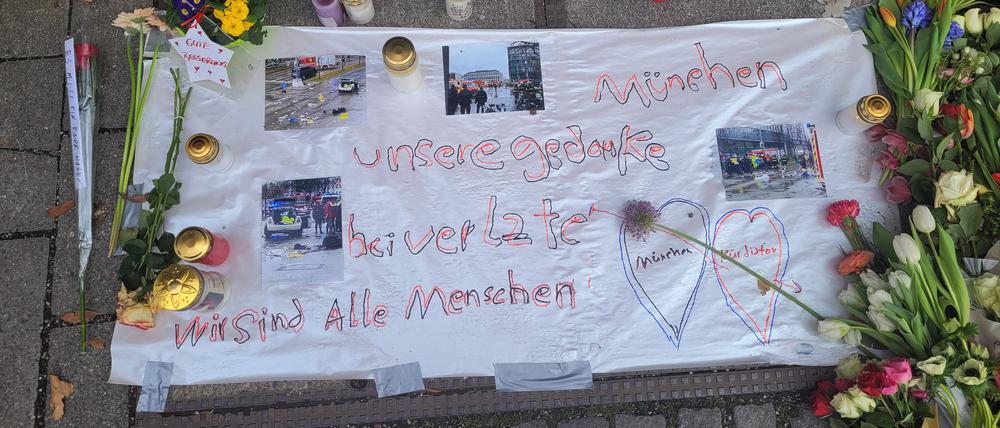 GUTE
BESSERUNG
München
unsere gedanke
bei verlzte'
wir sind Alle Menschen'
München